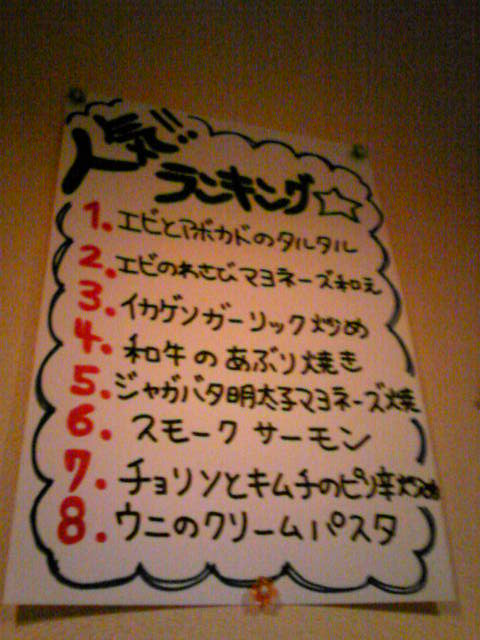 人気!!
ランキング☆
1. エビとアボカドのタルタル
2. エビのわさびマヨネーズ和え
3. イカゲソガーリック炒め
4. 和牛のあぶり焼き
5. ジャガバタ明太子マヨネーズ焼
6. スモークサーモン
7. チョリソとキムチのピリ辛炒め
8. ウニのクリームパスタ